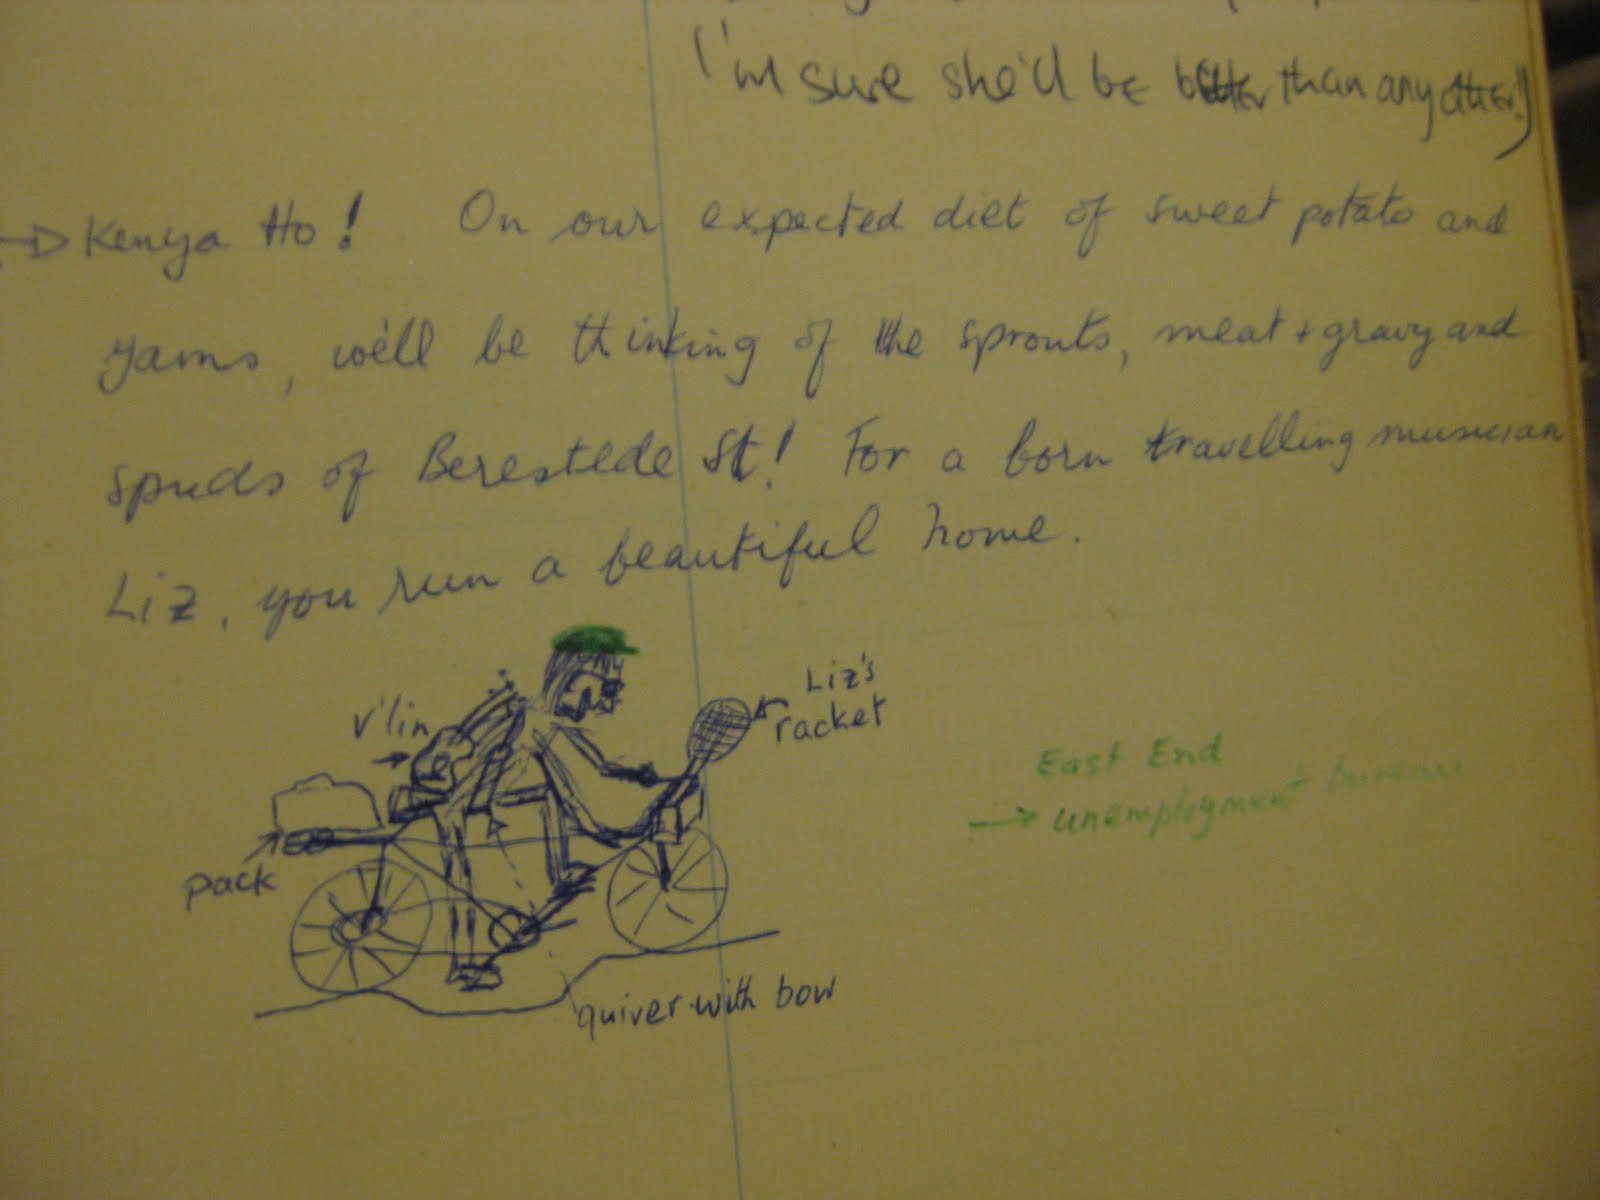 (I'm sure she'll be better than any other!)
Kenya Ho! On our expected diet of sweet potato and
yams, we'll be thinking of the sprouts, meat + gravy and
spuds of Berestede St! For a born travelling musician
Liz, you run a beautiful home.
v'lin
Liz's
racket
East End
unemployment bureau
pack
quiver with bow